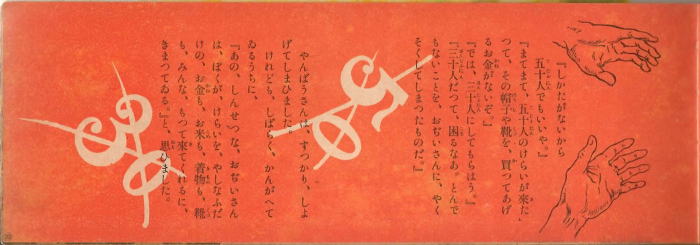 『しかたがないから
五十人でもいいや。』
『まてまて、五十人のけらいが來た
つて、その帽子や靴を、買つてあげ
るお金がないぞ。』
『では、三十人にしてもらはう。』
『三十人だつて、困るなあ。とんで
もないことを、おぢいさんに、やく
そくしてしまつたものだ。』
やんぼうさんは、すつかり、しよ
げてしまひました。
けれども、しばらく、かんがへて
ゐるうちに、
『あの、しんせつな、おぢいさん
は、ぼくが、けらいを、やしなふだ
けの、お金も、お米も、着物も、靴
も、みんな、もつて來てくれるに、
きまつてゐる。』と、思ひました。